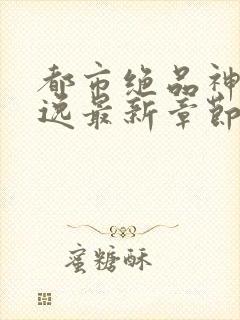 都市绝品神
选最新章節
蜜糖酥